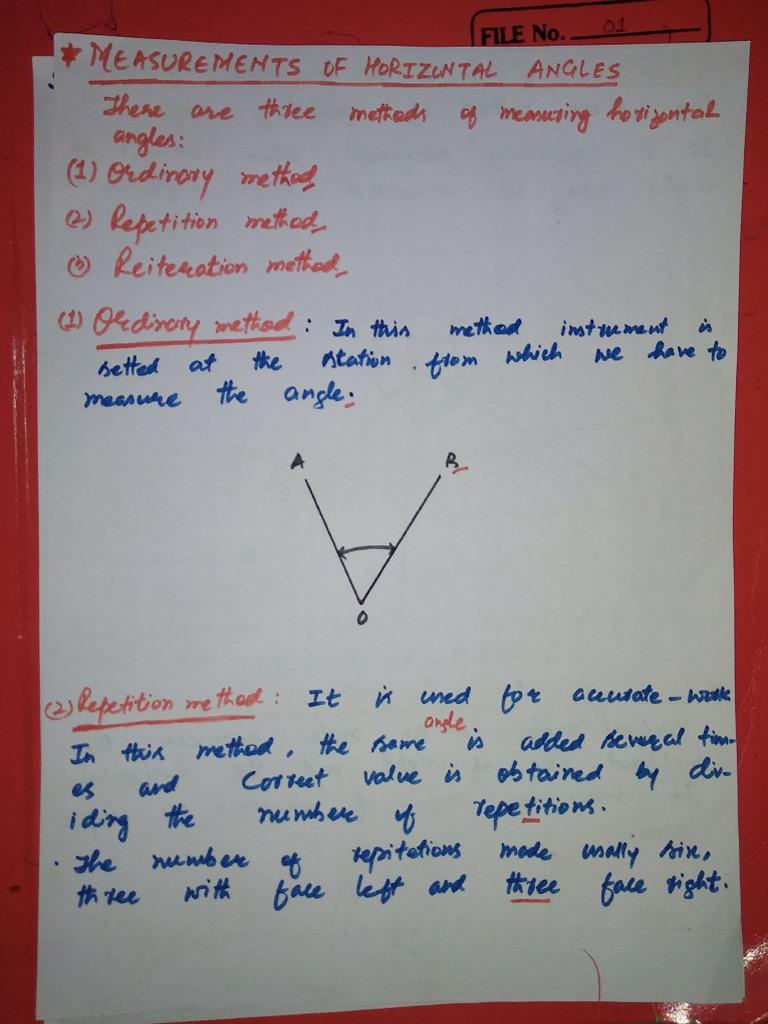 FILE No. 01
* MEASUREMENTS OF HORIZONTAL ANGLES
There are three methods of measuring horizontal
angles:
(1) Ordinary method
(2) Repetition method
(3) Reiteration method
(1) Ordinary method : In this method instrument is
setted at the station from which we have to
measure the angle.
A B
O
(2) Repetition method : It is used for accurate-work
In this method, the same angle is added several tim-
es and Correct value is obtained by div-
iding the number of repetitions.
. The number of repitations made usally six,
three with face left and three face right.